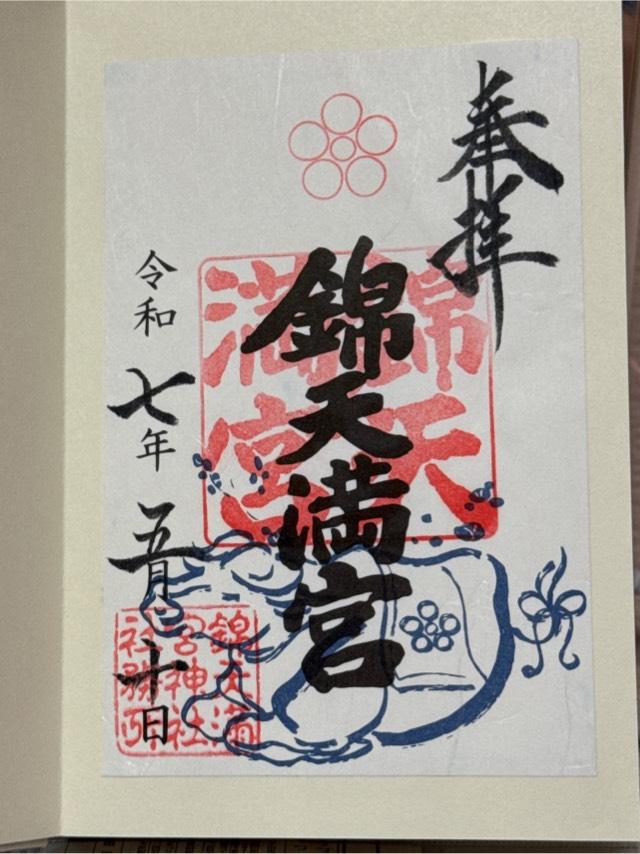 奉拝
錦天満宮
錦天
満宮
令和七年五月十日
錦天満
宮神社
社務所